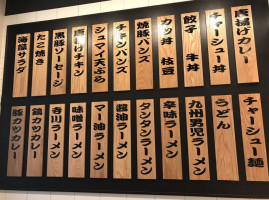 唐揚げカレー
チャーシュー丼
餃子 牛丼
カツ丼 枝豆
焼豚バンズ
チキンバンズ
シュマイ天ぷら
唐揚げチキン
黒豚ソーセージ
たこ焼き
海藻サラダ
チャーシュー麺
うどん
九州男児ラーメン
辛味ラーメン
タンタンラーメン
醤油ラーメン
マー油ラーメン
味噌ラーメン
寺川ラーメン
鶏カツカレー
豚カツカレー